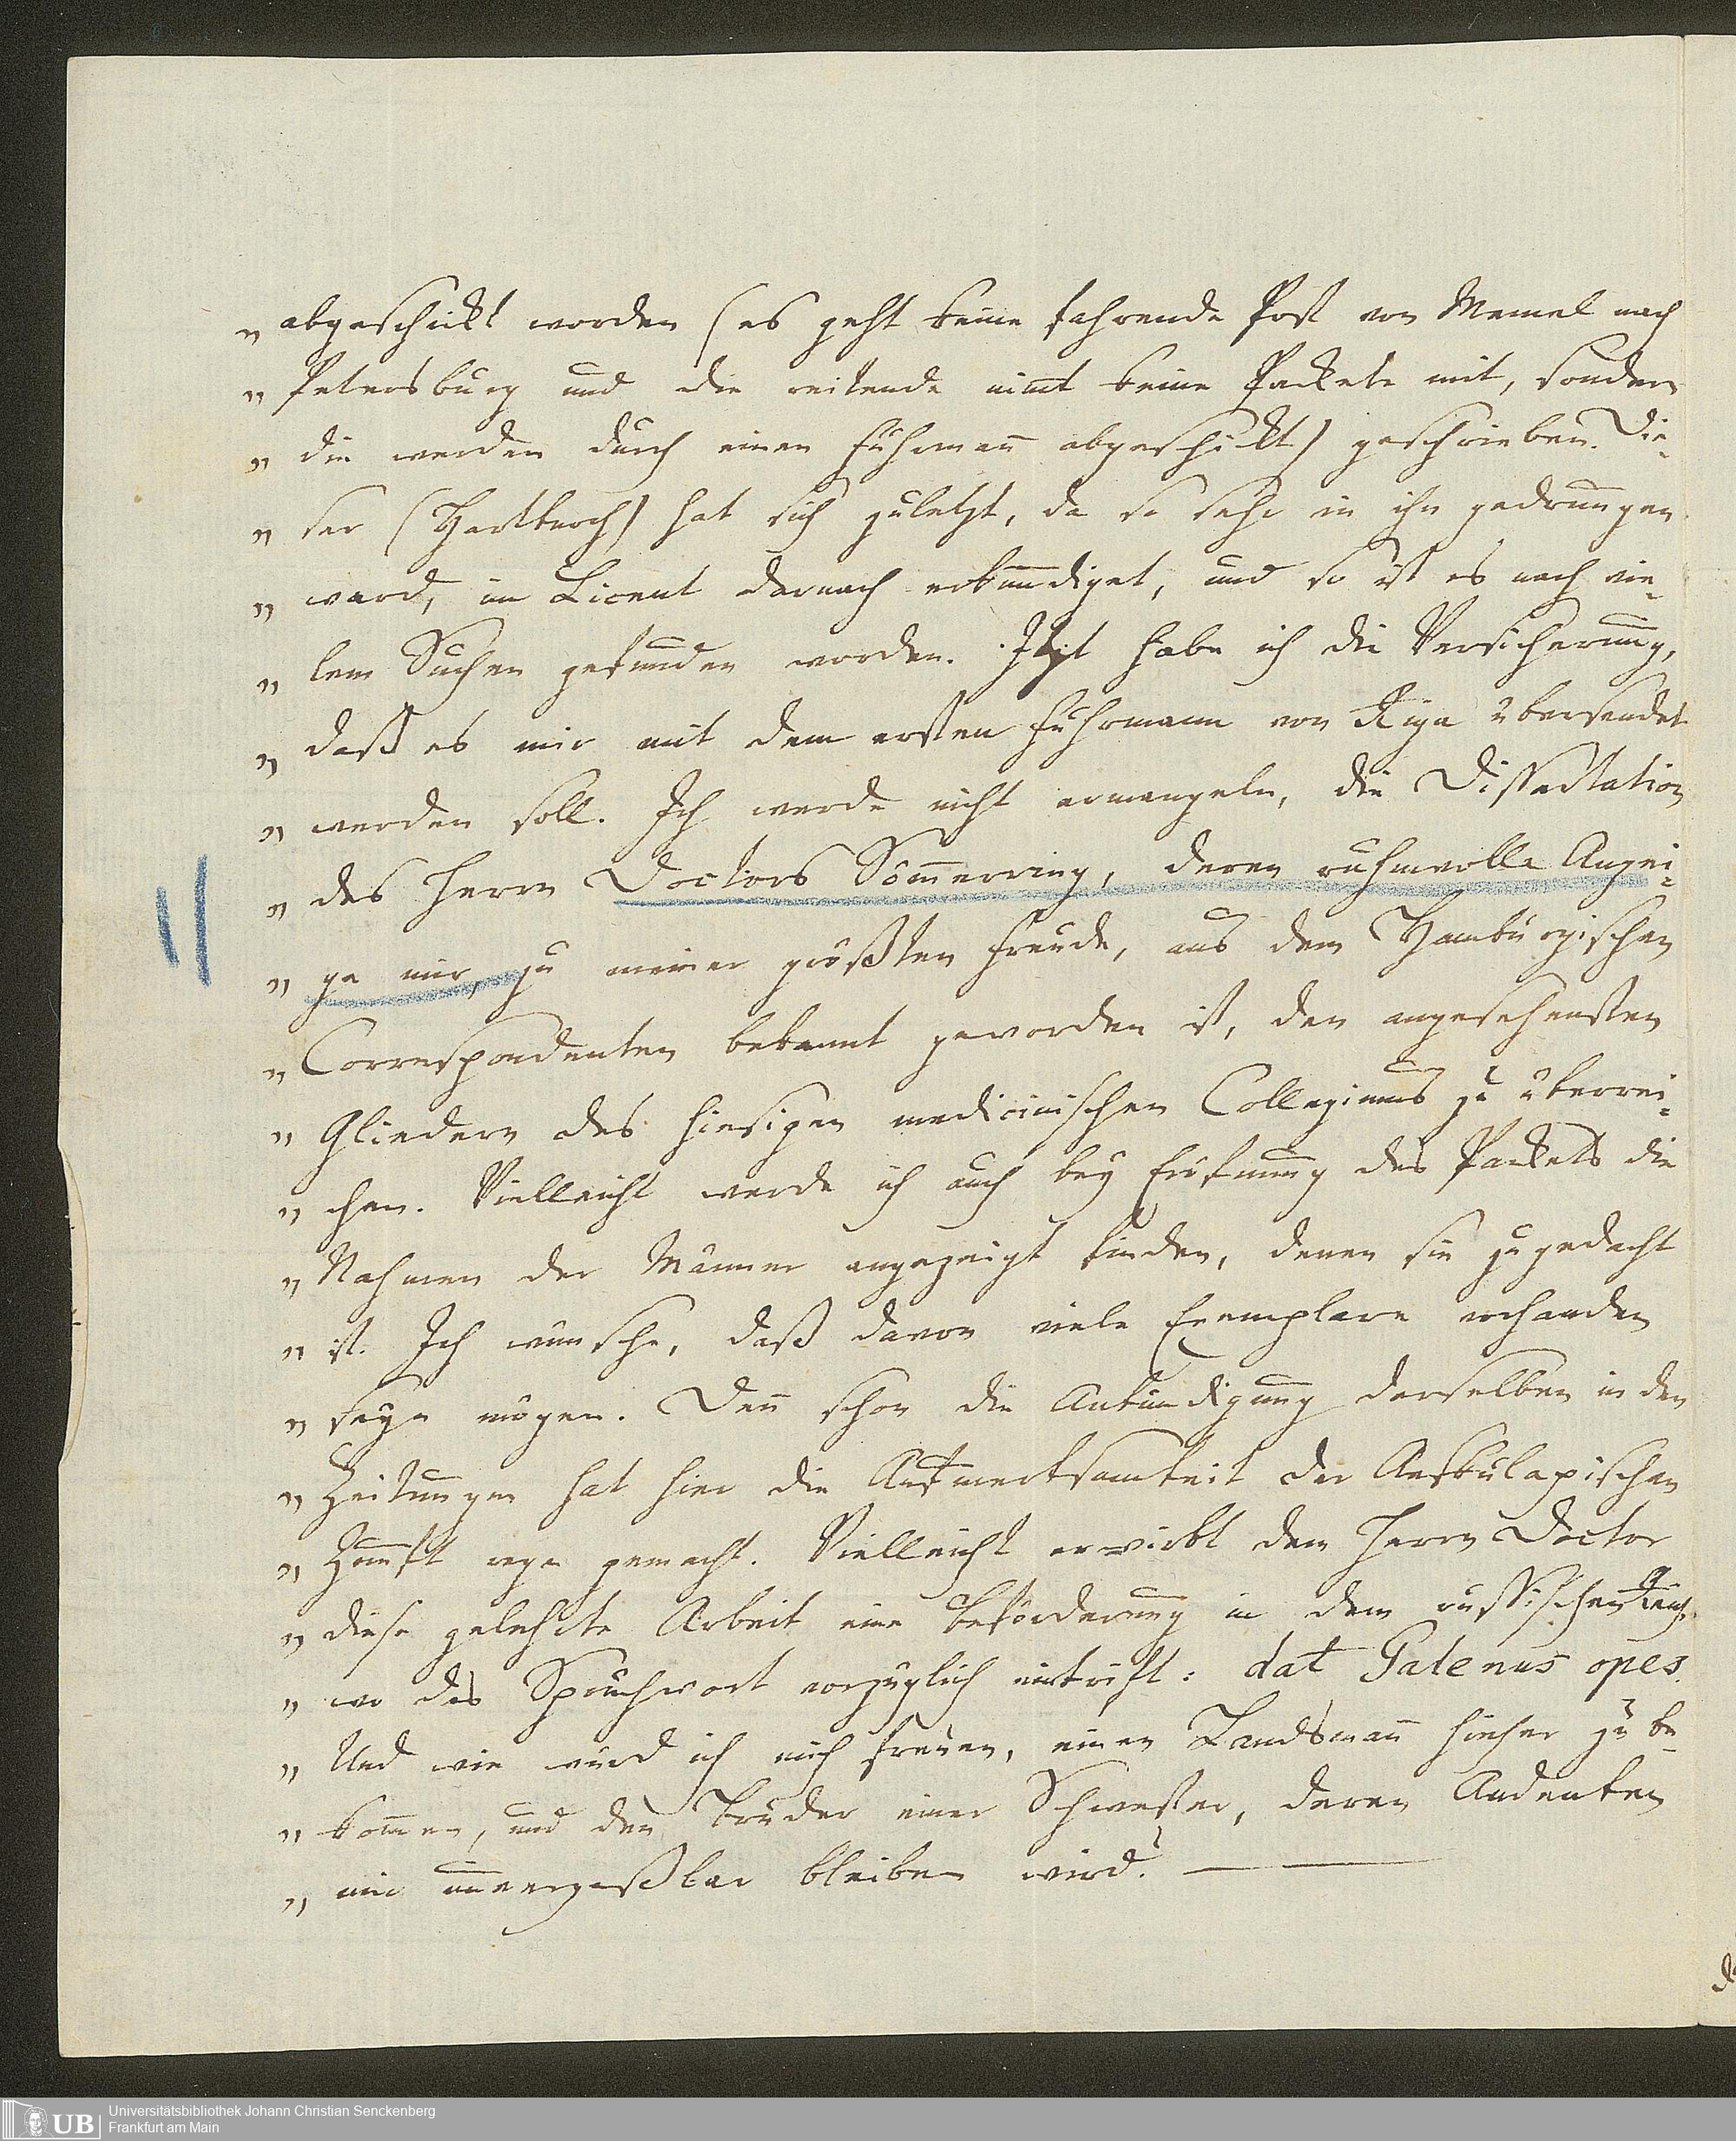 „ abgeschickt worden (es geht keine fahrende Post von Memel nach
„ Petersburg und die reitende nimt keine Packete mit, sondern
„ die werden durch einen Fuhrmann abgeschickt) geschrieben. Die-
„ ser (Hartknoch) hat sich zuletzt, da so sehr in ihn gedrungen
„ ward, im Licent darnach erkundiget, und so ist es nach vie-
„ lem Suchen gefunden worden. Jtzt habe ich die Versicherung,
„ daß es mir mit dem ersten Fuhrmann von Riga übersendet
„ werden soll. Ich werde nicht ermangeln, die Dissertation
„ des Herrn Doctors Sömmerring, deren ruhmvolle Anzei-
„ ge mir, zu meiner größten Freude, aus dem Hamburgischen
„ Correspondenten bekannt geworden ist, den angesehensten
„ Gliedern des hiesigen medicinischen Collegiums zu überrei-
„ chen. Vielleicht werde ich auch bey Eröfnung des Packets die
„ Nahmen der Männer angezeigt finden, denen sie zugedacht
„ ist. Ich wünsche, daß davon viele Exemplare vorhanden
„ seyn mögen. Denn schon die Ankündigung derselben in den
„ Zeitungen hat hier die Aufmerksamkeit der Aeskulapischen
„ Zunft rege gemacht. Vielleicht erwirbt dem Herrn Doctor
„ diese gelehrte Arbeit eine Beförderung in dem russischen Reich,
„ wo das Spruchwort vorzüglich eintrift: dat Galenus opes.
„ Und wie würd ich mich freuen, einen Landsmann hieher zu be-
„ kommen, und den Bruder einer Schwester, deren Andenken
„ mir unvergeßbar bleiben wird! — —
UB
Universitätsbibliothek Johann Christian Senckenberg
Frankfurt am Main